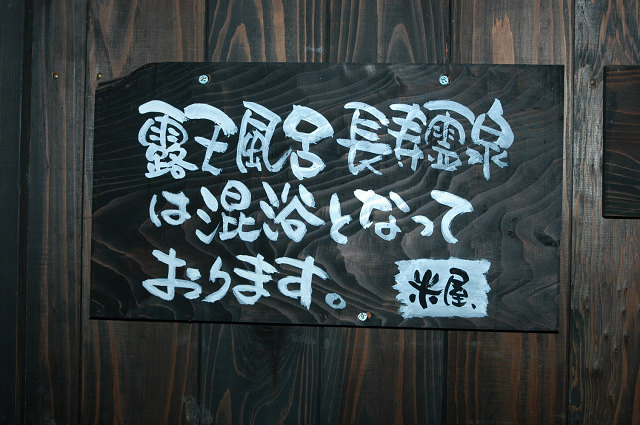 露天風呂 長寿霊泉
は混浴となって
おります。
米屋